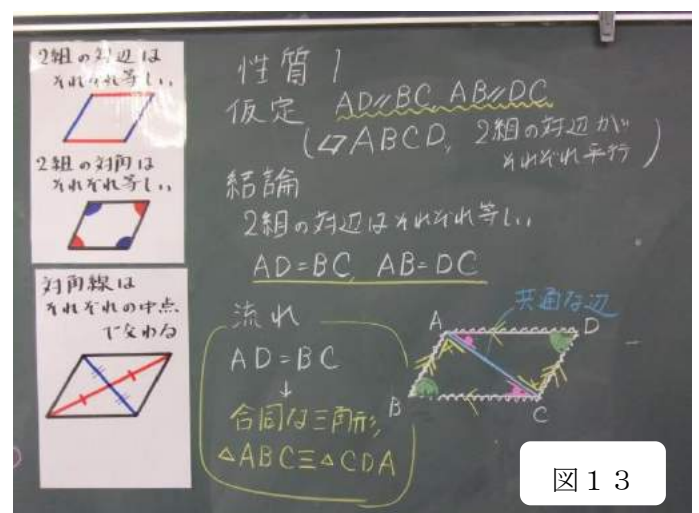 2組の対辺は
それぞれ等しい
2組の対角は
それぞれ等しい
対角線は
それぞれの中点
で交わる
性質1
仮定 AD//BC, AB//DC
(▱ABCD, 2組の対辺が
それぞれ平行)
結論
2組の対辺はそれぞれ等しい
AD=BC, AB=DC
流れ
AD=BC
↓
合同な三角形
△ABC≡△CDA
共通な辺
A
D
B
C
図13